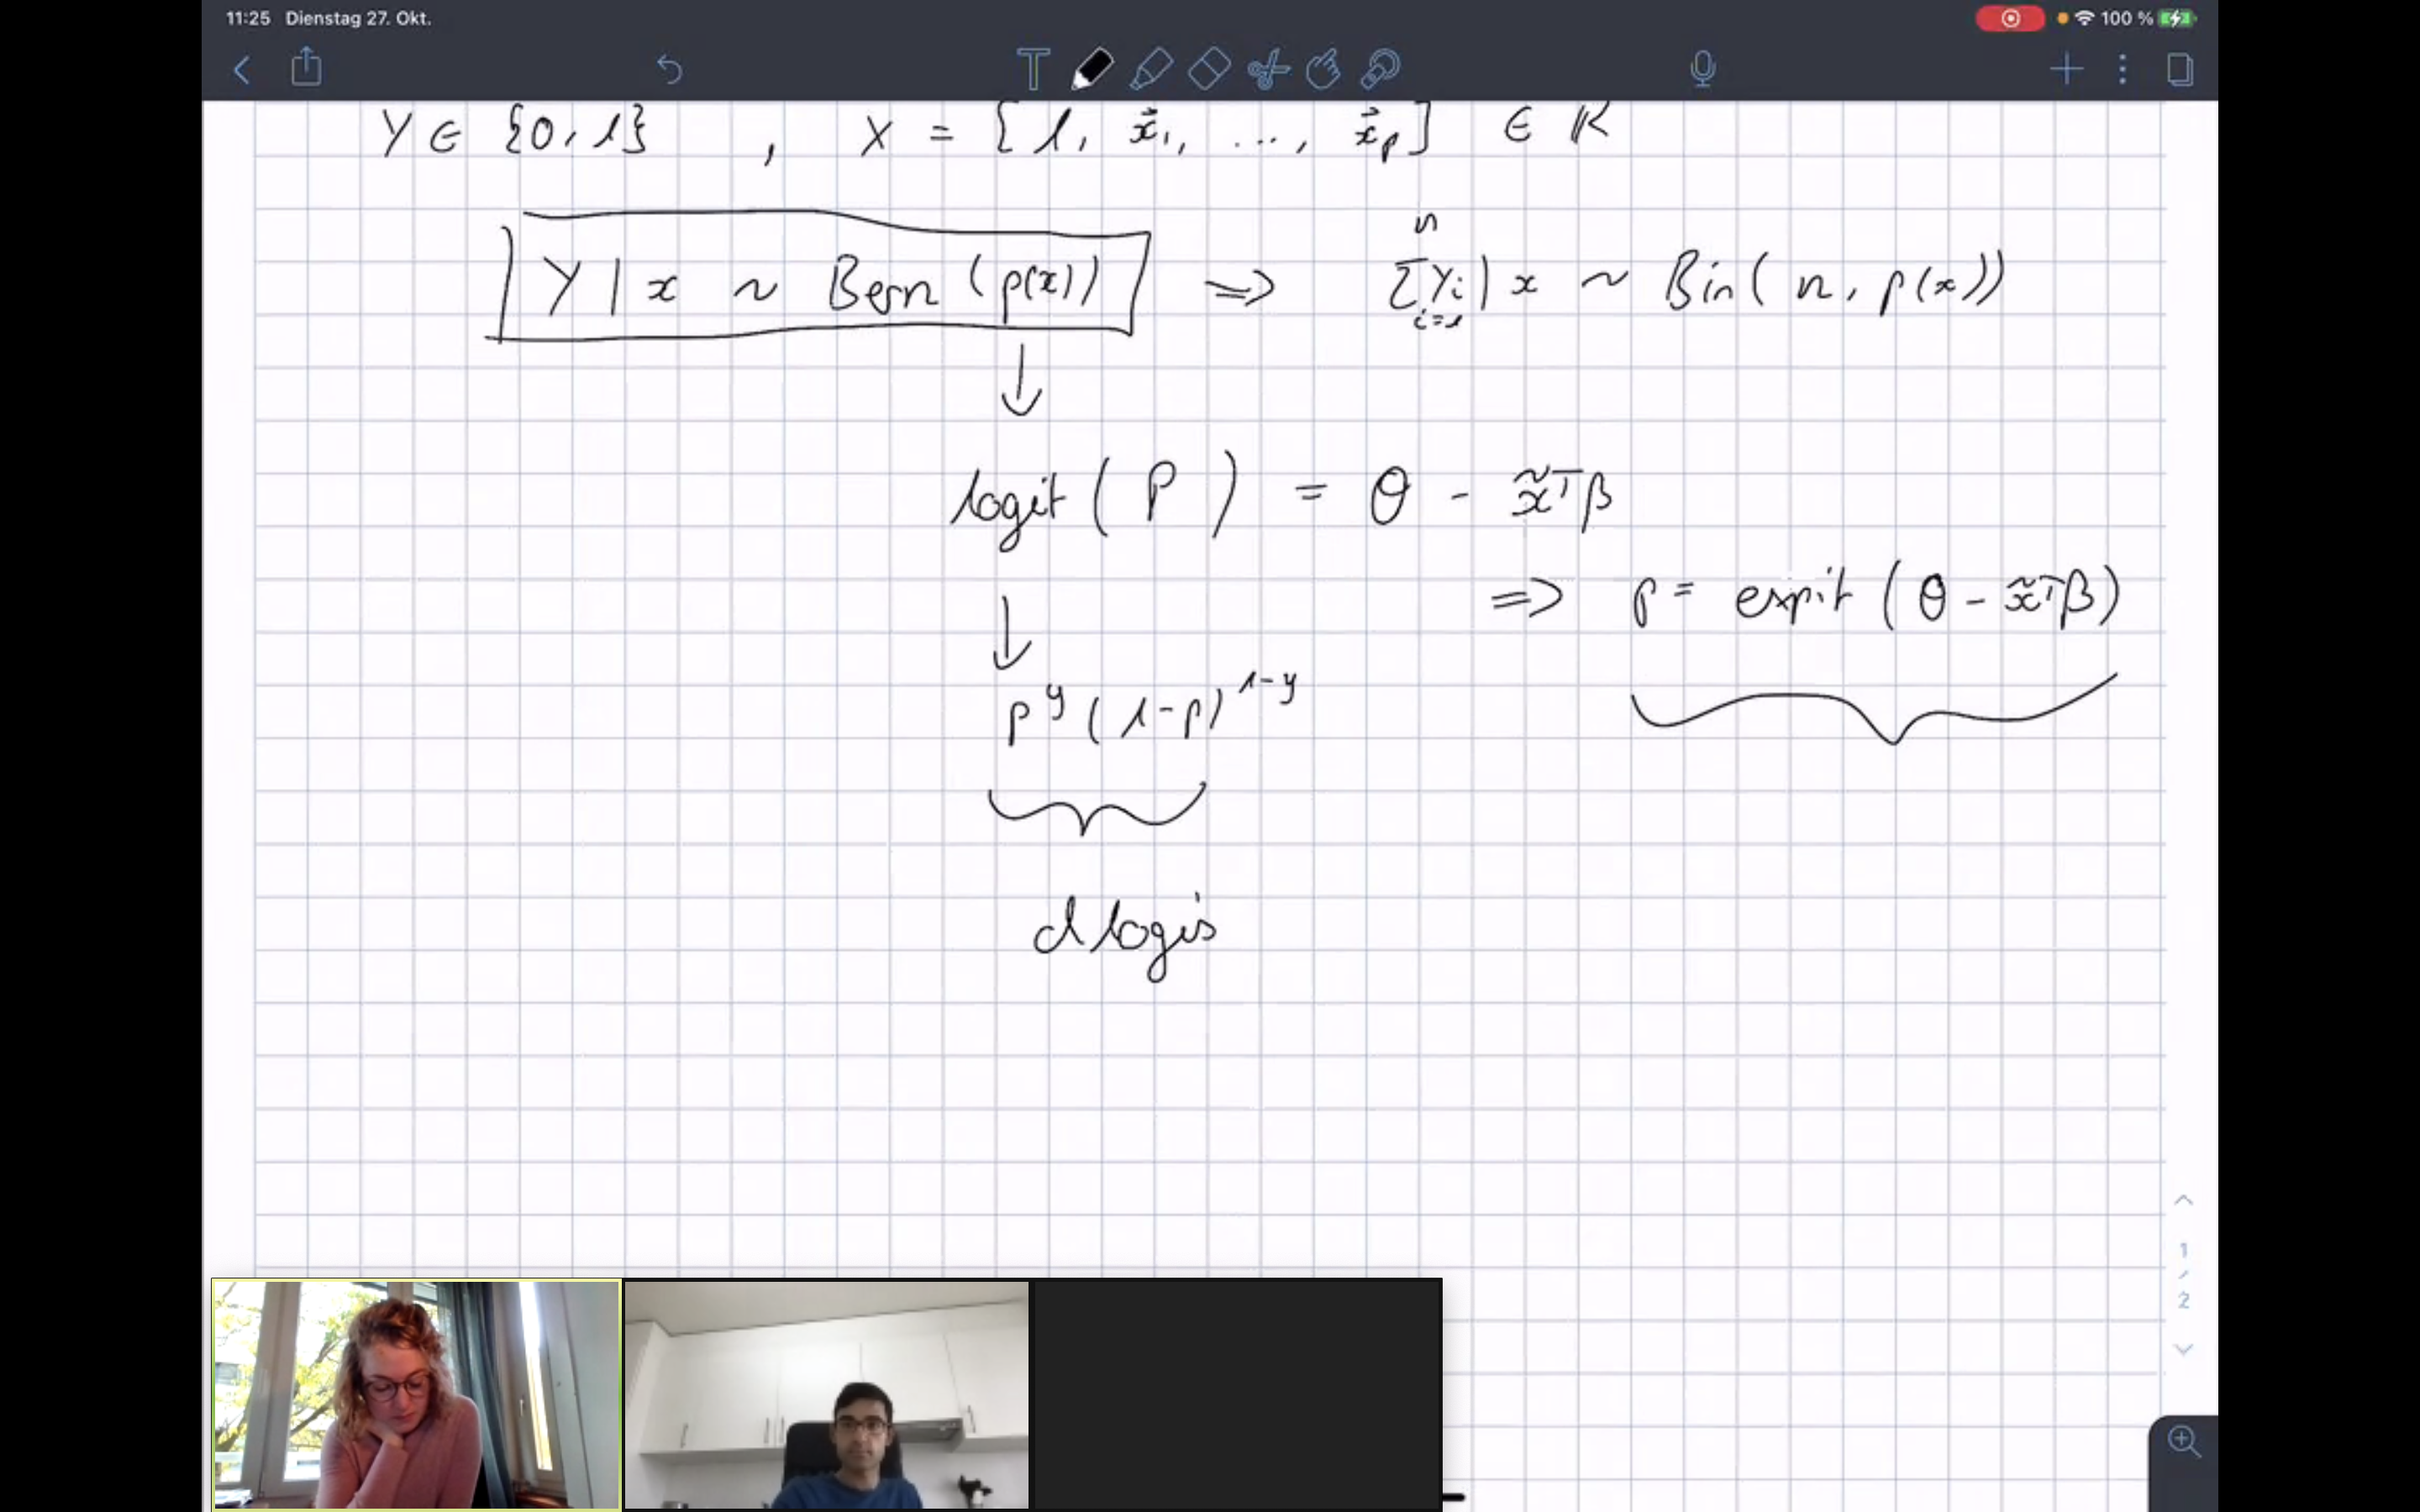 11:25 Dienstag 27. Okt. 100 %
Y ∈ {0, 1} , X = [1, x⃗₁, ..., x⃗ₚ] ∈ ℝ
Y | x ~ Bern (p(x)) ⇒ ∑ᵢ₌₁ⁿ Yᵢ | x ~ Bin( n, p(x))
↓
logit ( P ) = θ - x̃ᵀβ
⇒ p = expit ( θ - x̃ᵀβ)
↓
p^y (1-p)^1-y
dlogis
1 / 2